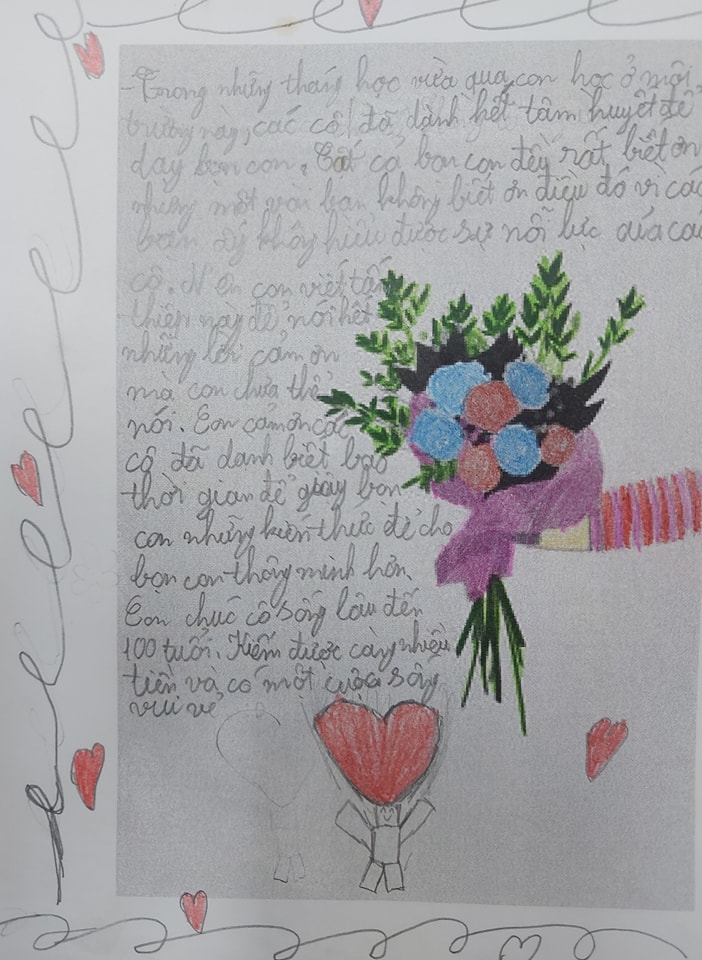 -Trong những tháng học vừa qua, con học ở môi
trường này, các cô đã dành hết tâm huyết để
dạy bọn con. Tất cả bọn con đều rất biết ơn
nhưng một vài bạn không biết ơn điều đó vì các
bạn ấy không hiểu được sự nỗ lực của các
cô. Nên con viết tấm
thiệp này để nói hết
những lời cảm ơn
mà con chưa thể
nói. Con cảm ơn các
cô đã danh biết bao
thời gian để giảy bọn
con những kiến thức để cho
bọn con thông minh hơn.
Con chúc cô sống lâu đến
100 tuổi. Kiếm được càng nhiều
tiền và có một cuộc sống
vui vẻ